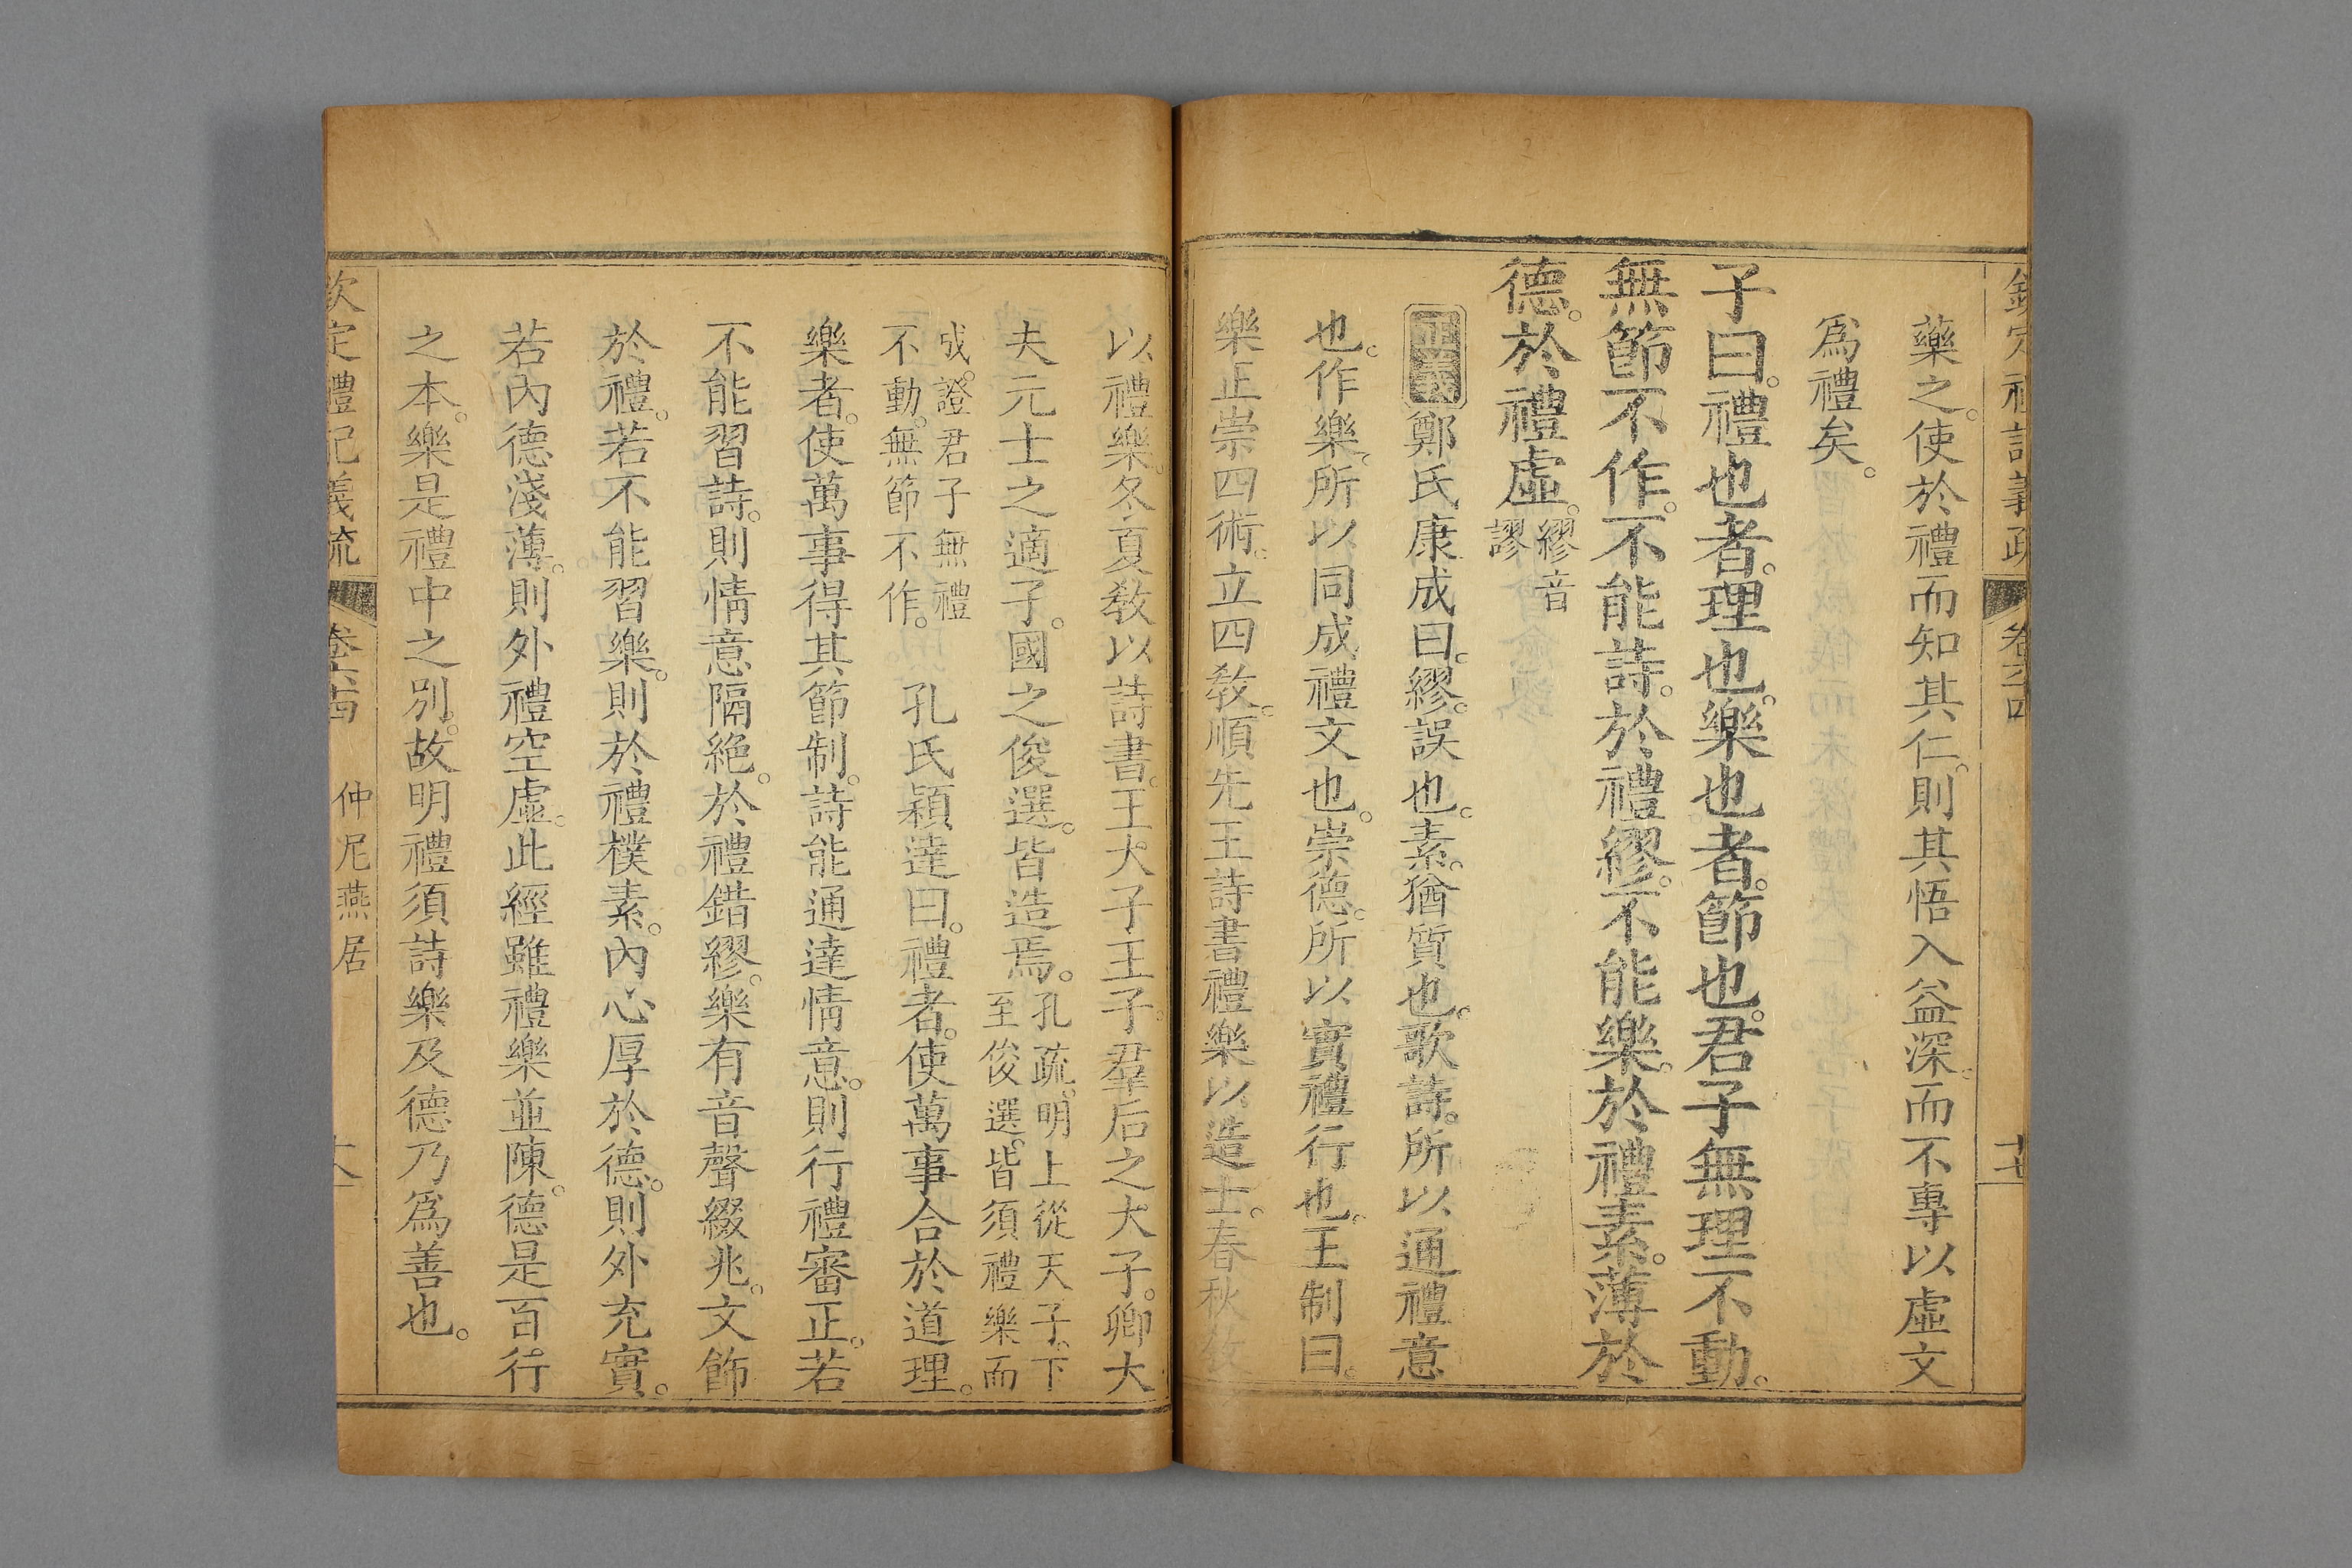 欽定禮記義疏 卷六十四 十七
藥之。使於禮而知其仁。則其悟入益深。而不專以虛文
爲禮矣。
子曰。禮也者。理也。樂也者。節也。君子無理不動。
無節不作。不能詩。於禮繆。不能樂。於禮素。薄於
德。於禮虛。繆音
謬
正義鄭氏康成曰。繆。誤也。素。猶質也。歌詩。所以通禮意
也。作樂。所以同成禮文也。崇德。所以實禮行也。王制曰。
樂正崇四術。立四敎。順先王詩書禮樂以造士。春秋敎
以禮樂。冬夏敎以詩書。王大子王子。羣后之大子。卿大
夫元士之適子。國之俊選。皆造焉。孔疏。明上從天子。下
至俊選。皆須禮樂而
成。證君子無禮
不動。無節不作。
孔氏穎達曰。禮者。使萬事合於道理。
樂者。使萬事得其節制。詩能通達情意。則行禮審正。若
不能習詩。則情意隔絶。於禮錯繆。樂有音聲綴兆。文飾
於禮。若不能習樂。則於禮樸素。內心厚於德。則外充實。
若內德淺薄。則外禮空虛。此經雖禮樂並陳。德是百行
之本。樂是禮中之別。故明禮須詩樂及德乃爲善也。
欽定禮記義疏 卷六十四 仲尼燕居 十八